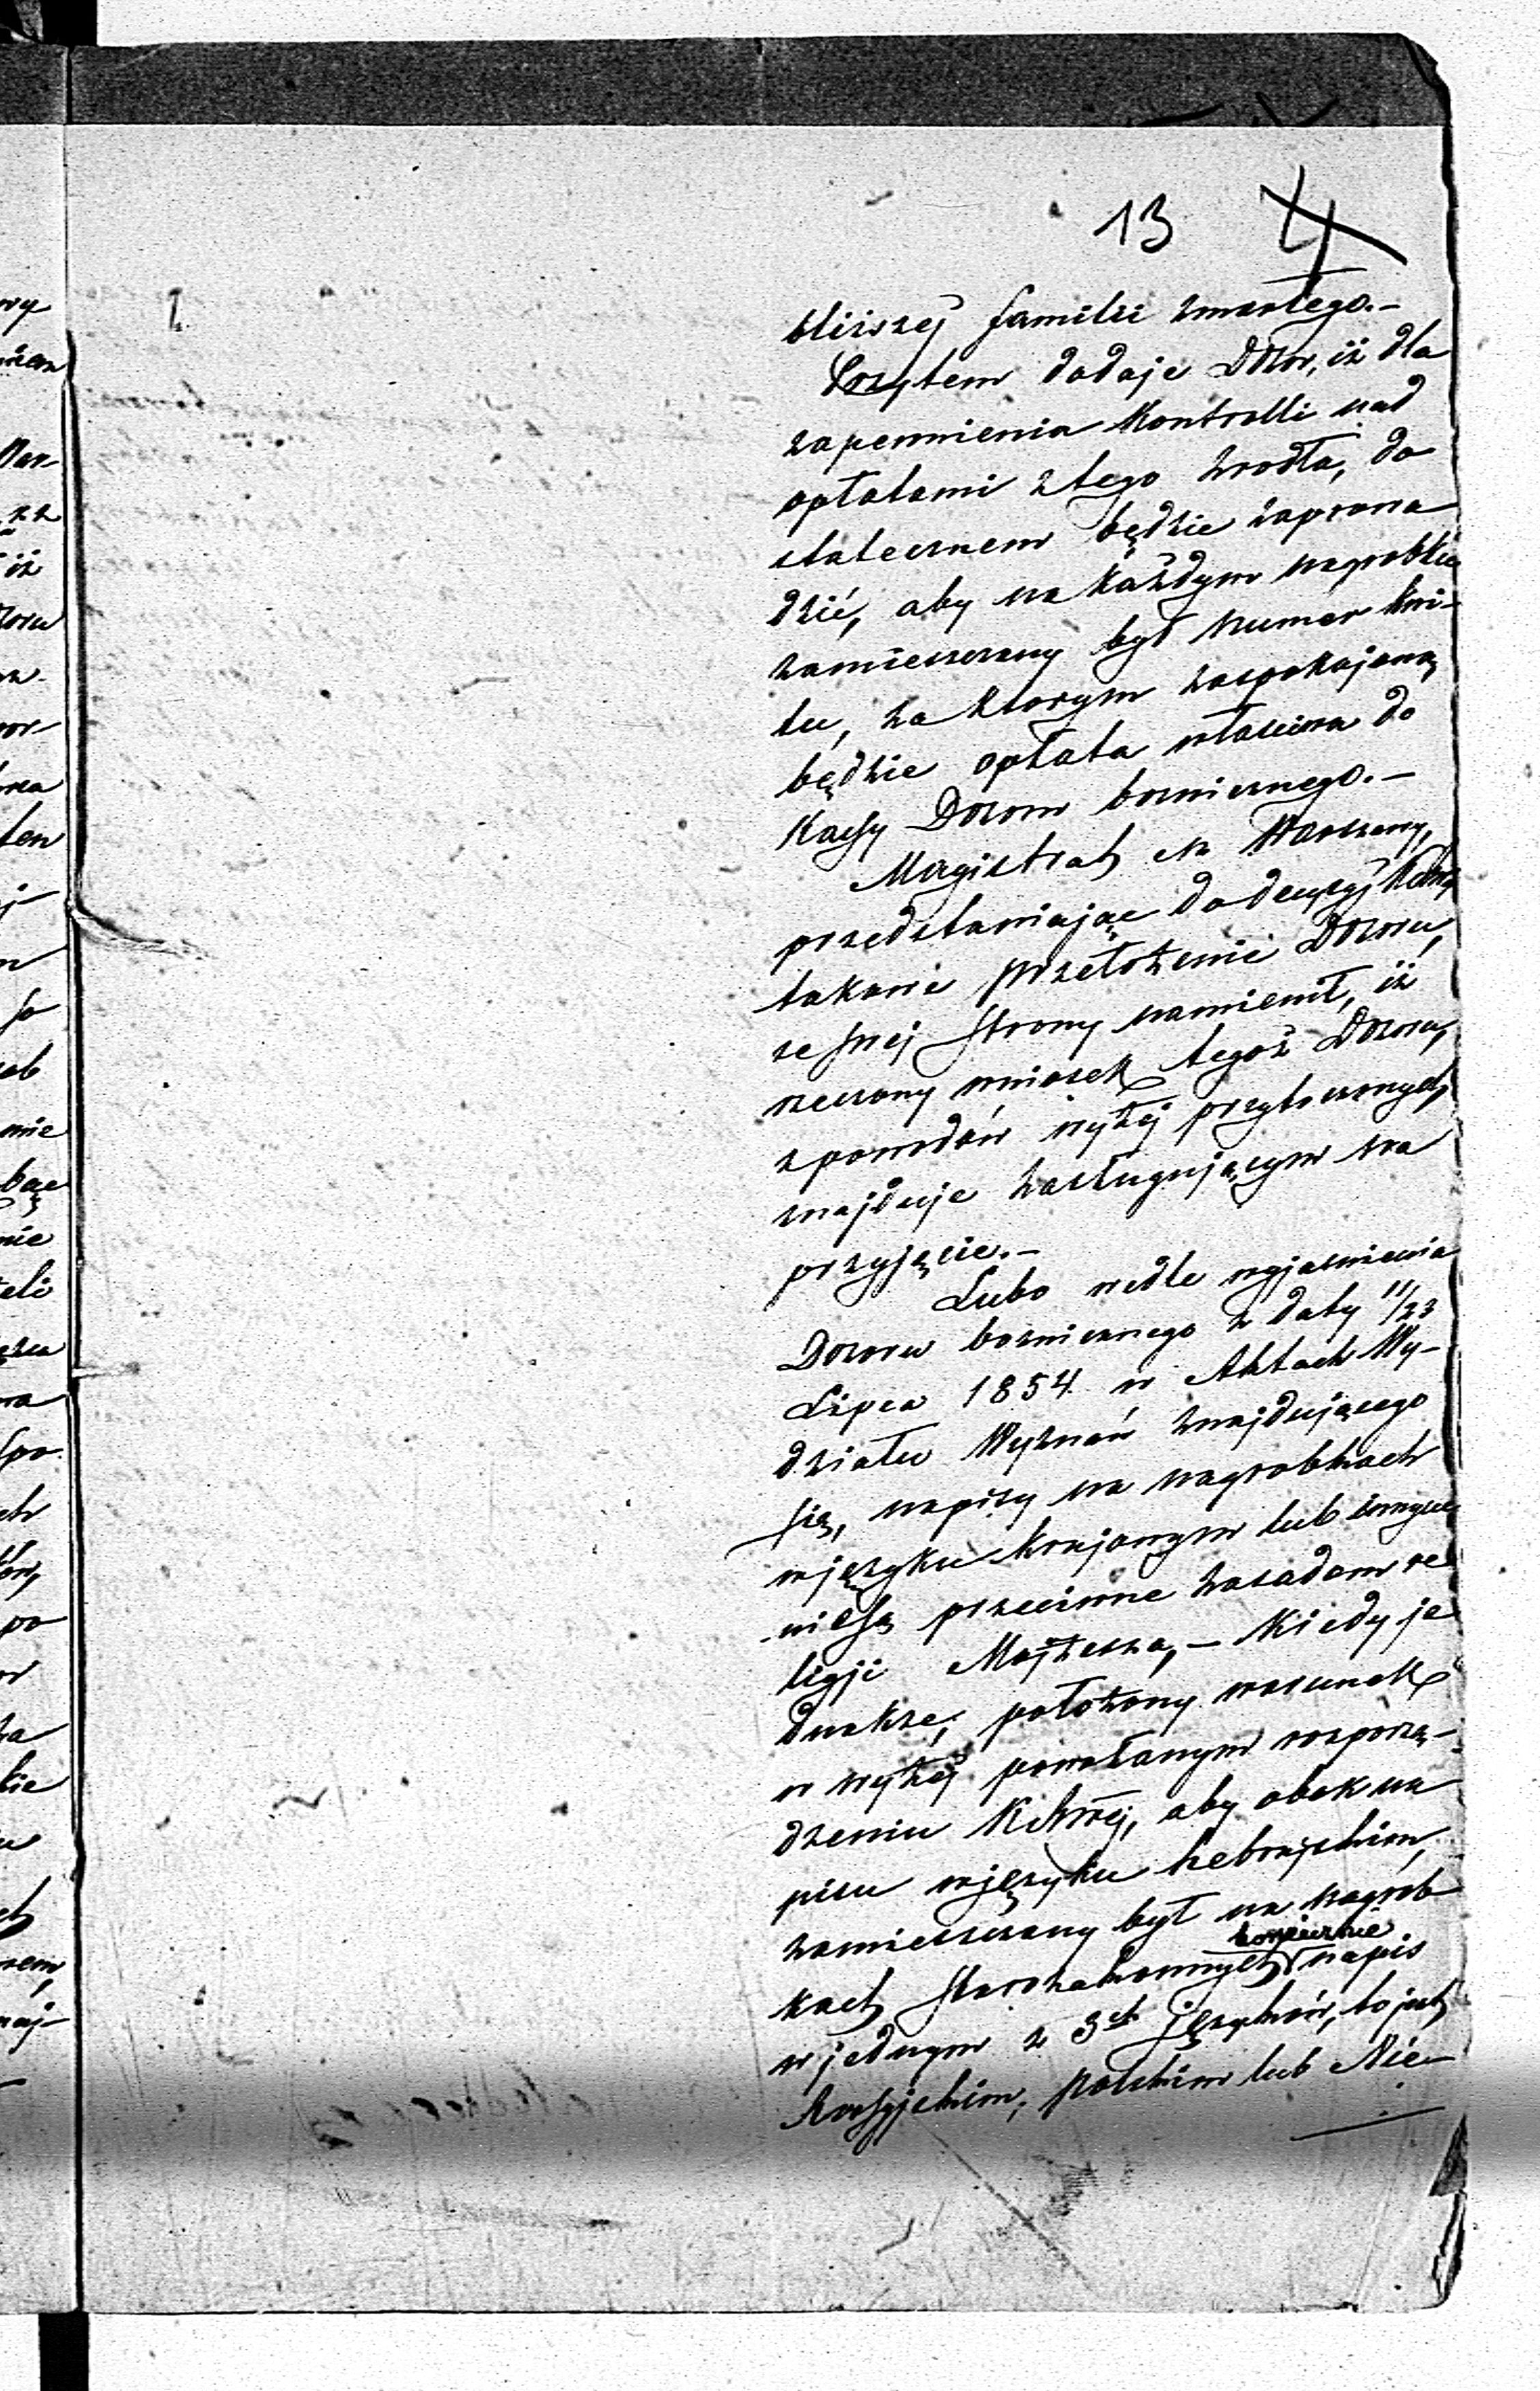 13 4
bliższej familii zmarłego.—
Przytem dodaje Dozór, iż dla
zapewnienia Kontrolli nad
opłatami z tego źrodła, do
statecznem będzie zaprowa
dzić, aby na każdym nagrobku
zamieszczony był numer kwi-
tu, za ktorym zaspokojoną
będzie opłata właściwa do
Kassy Dozoru bożniczego.—
Magistrat m Warszawy,
przedstawiając do decyzyi
takowe przełożenie Dozoru,
ze swej strony namienił, iż
rzeczony wniosek tegoż Dozoru,
z powodów wyżej przytoczonych
znajduje zasługującym na
przyjęcie.—
Lubo wedle wyjasnienia
Dozoru bożniczego z daty 11/23
Lipca 1854 w Aktach Wy-
działu Wyznań znajdującego
się, napisy na nagrobkach
w języku krajowym lub innym
nie są przeciwne zasadom re
ligji Mojżesza,— Kiedy je
dnakże, położony warunek
w wyżej powołanym rozporzą-
dzeniu, aby obok na
pisu w języku hebrajskim,
zamieszczony był na nagrob
koniecznie
kach starozakonnych napis
w jednym z 3ch języków, to jest
Rossyjskim, polskim lub Nie-